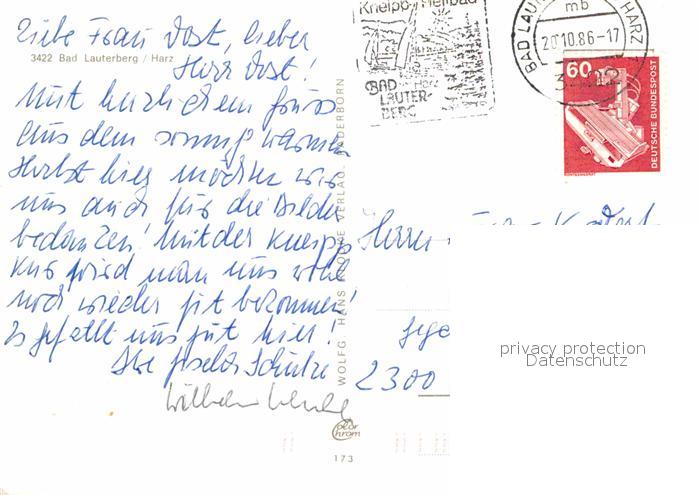 Liebe Frau Dost, lieber
Herr Dost!
3422 Bad Lauterberg / Harz
Mit herzlichem Gruss
aus dem sonnig warmen
Herbst hier möchten wir
uns auch für die Bilder
bedanken! Mit der Kneipp
Kur wird man uns wohl
noch wieder fit bekommen!
Es gefällt uns gut hier!
Ihre Gisela Schulze
Wilhelm
WOLFG. HANS VERLAG PADERBORN
color chrom
173
Kneipp-Heilbad
BAD
LAUTER-
BERG
Harz
BAD LAUTERBERG HARZ
mb
20.10.86-17
3422
60
DEUTSCHE BUNDESPOST
Herrn
2300
privacy protection
Datenschutz